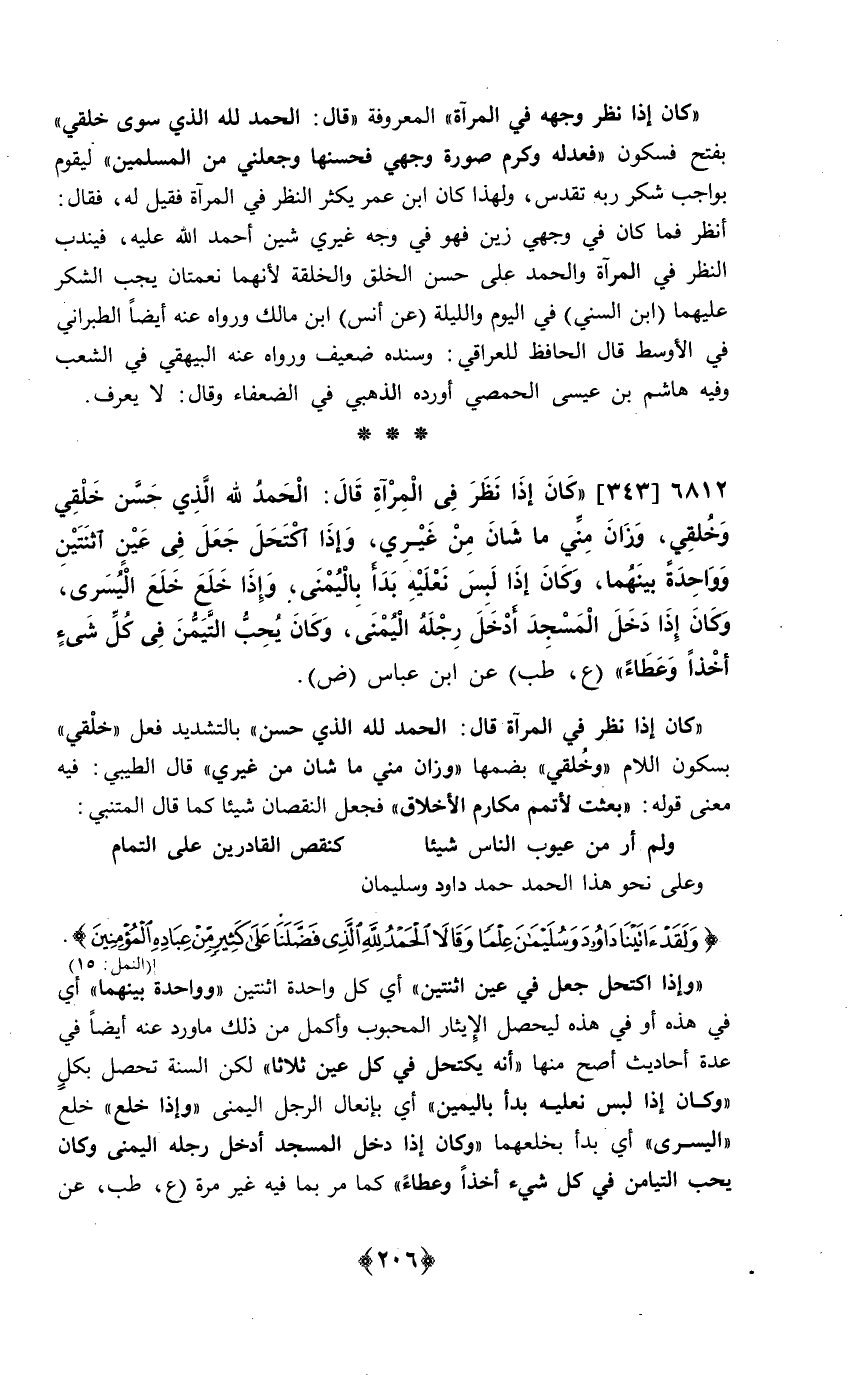 «كان إذا نظر وجهه في المرآة» المعروفة «قال: الحمد لله الذي سوى خلقي»
بفتح فسكون «فعدله وكرم صورة وجهي فحسنها وجعلني من المسلمين» ليقوم
بواجب شكر ربه تقدس، ولهذا كان ابن عمر يكثر النظر في المرآة فقيل له، فقال:
أنظر فما كان في وجهي زين فهو في وجه غيري شين أحمد الله عليه، فيندب
النظر في المرآة والحمد على حسن الخلق والخلقة لأنهما نعمتان يجب الشكر
عليهما (ابن السني) في اليوم والليلة (عن أنس) ابن مالك ورواه عنه أيضاً الطبراني
في الأوسط قال الحافظ للعراقي: وسنده ضعيف ورواه عنه البيهقي في الشعب
وفيه هاشم بن عيسى الحمصي أورده الذهبي في الضعفاء وقال: لا يعرف.
* * *
٦٨١٢ [٣٤٣] «كَانَ إذَا نَظَرَ فِى الْمِرْآةِ قَالَ: الْحَمدُ لله الَّذِي حَسَّن خَلْقِي
وَخُلقِي، وَزَانَ مِنِّي ما شَانَ مِنْ غَيْـرِي، وَإذَا اكْتَحَلَ جَعَلَ فِى عَيْنٍ اثْنَتَيْنِ
وَوَاحِدَةً بينَهُما، وَكَانَ إذَا لَبِسَ نَعْلَيْهِ بَدَأَ بِالْيُمْنَى، وَإذَا خَلَعَ خَلَعَ الْيُسَرى،
وَكَانَ إِذَا دَخَلَ الْمَسْجِدَ أَدْخَلَ رِجْلَهُ الْيُمْنَى، وَكَانَ يُحِبُّ التَّيَمُّنَ فِى كُلِّ شَىءٍ
أخْذاً وَعَطَاءً» (ع، طب) عن ابن عباس (ض).
«كان إذا نظر في المرآة قال: الحمد لله الذي حسن» بالتشديد فعل «خلْقي»
بسكون اللام «وخُلقي» بضمها «وزان مني ما شان من غيري» قال الطيبي: فيه
معنى قوله: «بعثت لأتمم مكارم الأخلاق» فجعل النقصان شيئا كما قال المتنبي:
ولم أر من عيوب الناس شيئا كنقص القادرين على التمام
وعلى نحو هذا الحمد حمد داود وسليمان
﴿وَلَقَدْ ءَاتَيْنَا دَاوُۥدَ وَسُلَيْمَٰنَ عِلْمًا وَقَالَا ٱلْحَمْدُ لِلَّهِ ٱلَّذِى فَضَّلَنَا عَلَىٰ كَثِيرٍ مِّنْ عِبَادِهِ ٱلْمُؤْمِنِينَ﴾.
[(النمل: ١٥)
«وإذا اكتحل جعل في عين اثنتين» أي كل واحدة اثنتين «وواحدة بينهما» أي
في هذه أو في هذه ليحصل الإيثار المحبوب وأكمل من ذلك ماورد عنه أيضاً في
عدة أحاديث أصح منها «أنه يكتحل في كل عين ثلاثا» لكن السنة تحصل بكلٍ
«وكـان إذا لبس نعليـه بدأ باليمين» أي بإنعال الرجل اليمنى «وإذا خلع» خلع
«اليسـرى» أي بدأ بخلعهما «وكان إذا دخل المسجد أدخل رجله اليمنى وكان
يحب التيامن في كل شيء أخذاً وعطاءً» كما مر بما فيه غير مرة (ع، طب، عن
﴿٢٠٦﴾